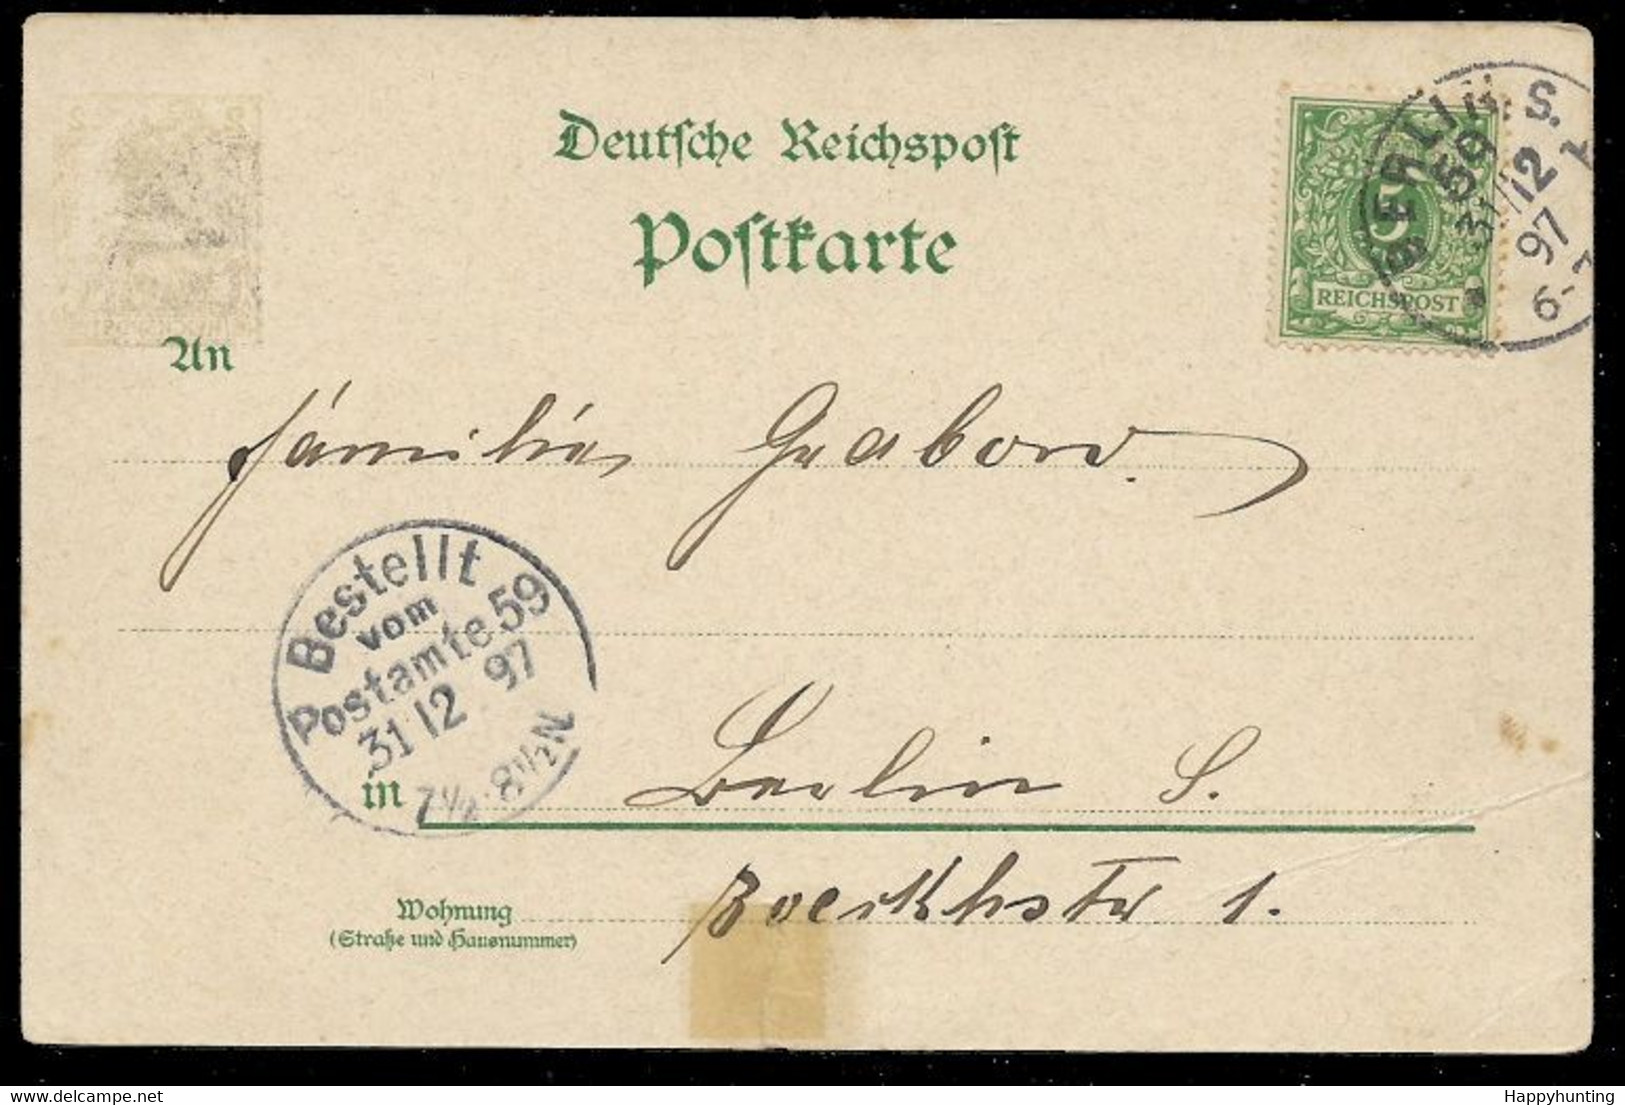 Deutsche Reichspost
Postkarte
BERLIN S.
59
31/12
97
6-7
REICHSPOST
An
Familie Grabow.
Bestellt
vom
Postamte 59
31 12 97
7½-8½N
in Berlin S.
Wohnung Boeckhstr 1.
(Straße und Hausnummer)
delcampe.net
Happyhunting